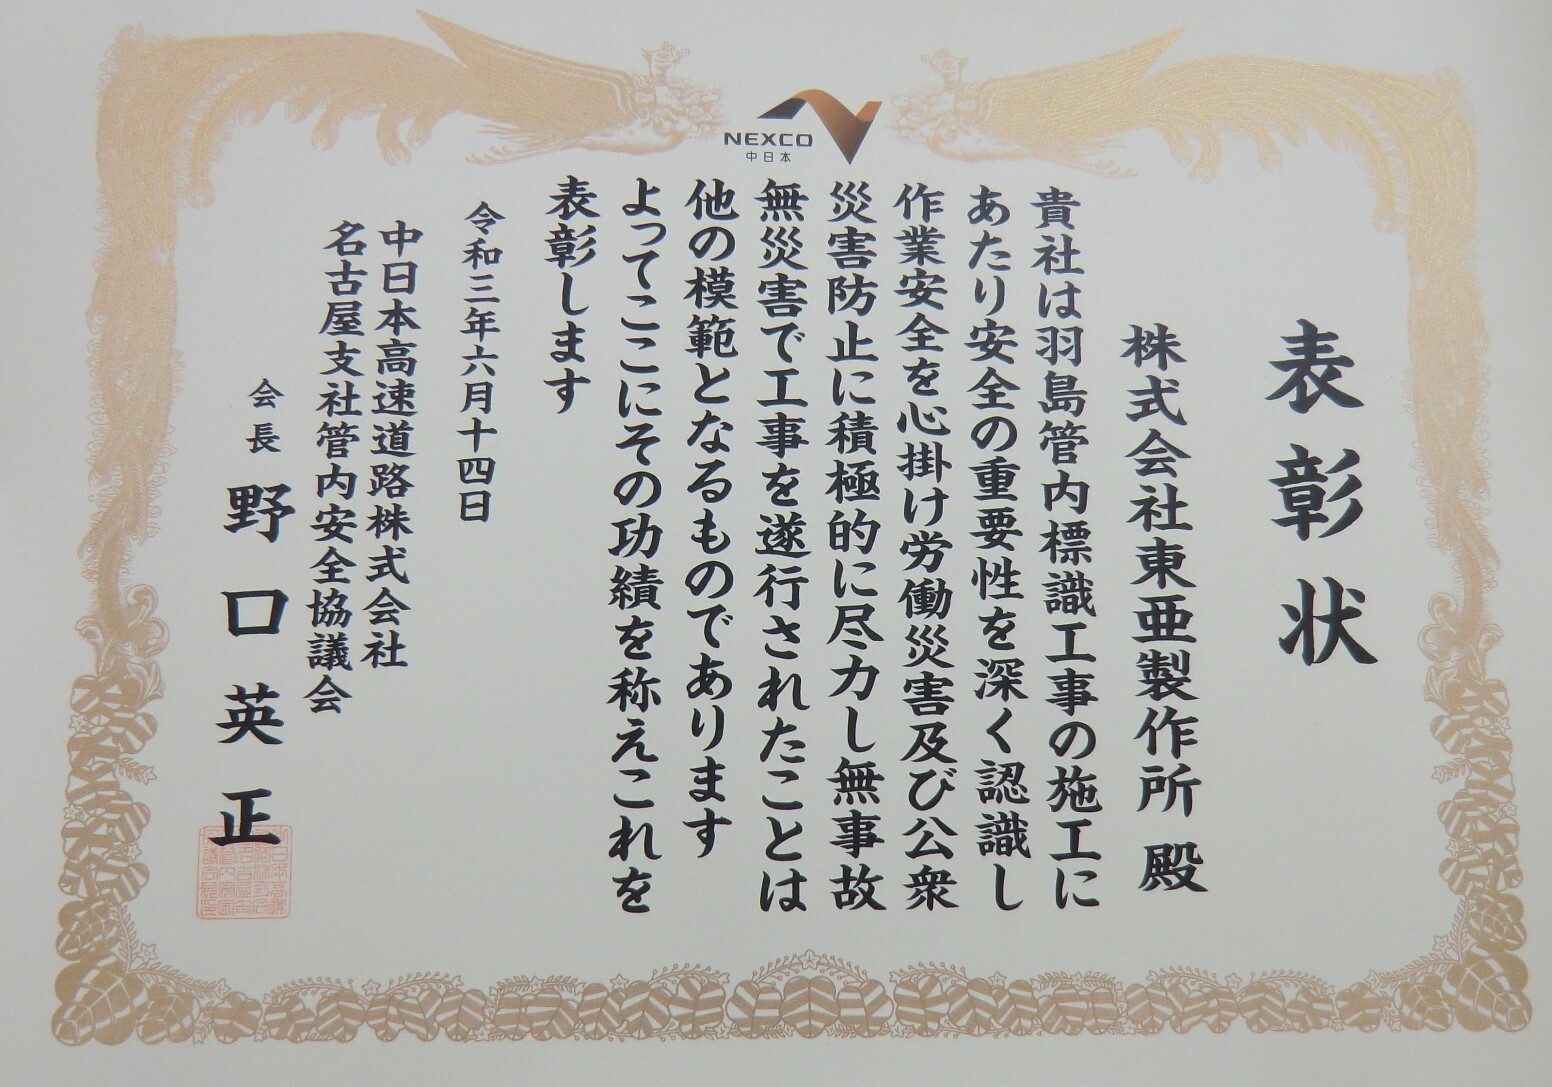 NEXCO
中日本
表彰状
株式会社東亜製作所 殿
貴社は羽島管内標識工事の施工に
あたり安全の重要性を深く認識し
作業安全を心掛け労働災害及び公衆
災害防止に積極的に尽力し無事故
無災害で工事を遂行されたことは
他の模範となるものであります
よってここにその功績を称えこれを
表彰します
令和三年六月十四日
中日本高速道路株式会社
名古屋支社管内安全協議会
会長 野口英正